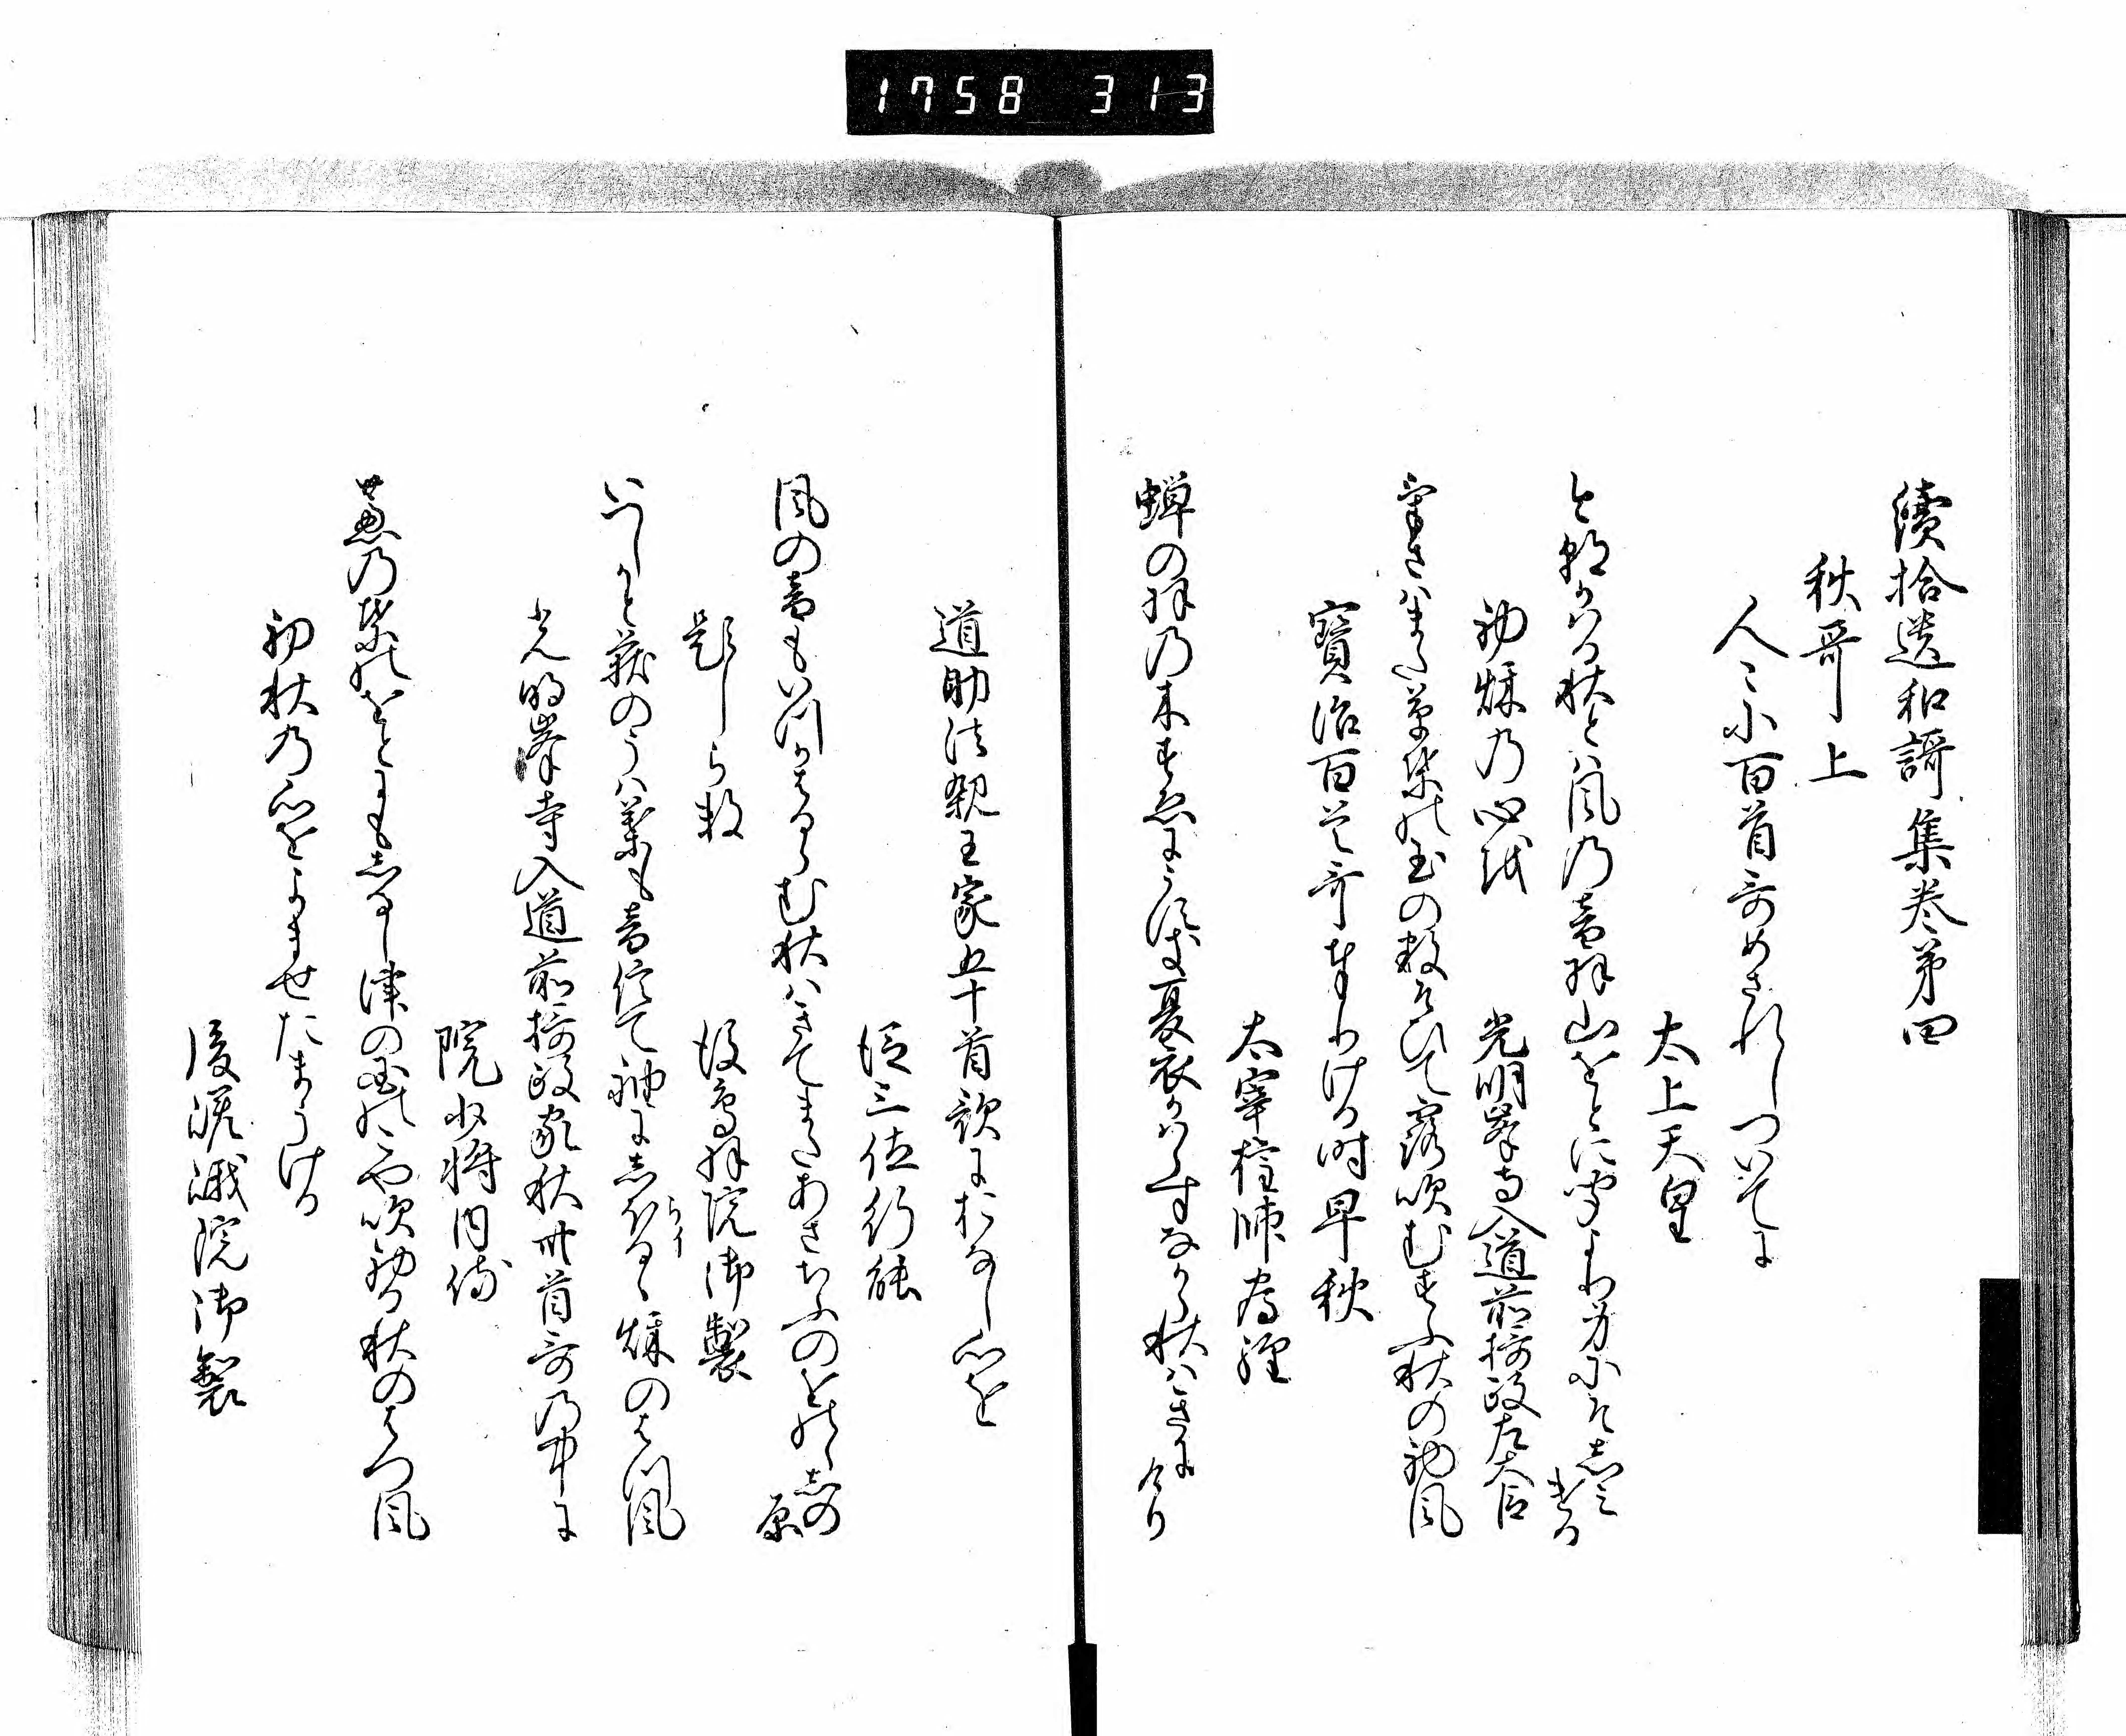 1758 313
續拾遺和謌集巻第四
秋哥上
人〻に百首哥めされしついてに
太上天皇
けふかはる秋とは風の音羽山をとに聞より身にそしみける
初秋の心を
光明峯寺入道前摂政左大臣
をきまさる草葉の玉の数そひて露吹むすふ秋の初風
寳治百首哥奉りける時早秋
太宰権帥為経
蝉の羽の木すゑにうすき夏衣かはらすなから秋はきにけり
道助法親王家五十首歌におなし心を
従三位行能
風の音もいつかはるらむ秋はきてまたあさちふのをのゝしの原
題しらす
後鳥羽院御製
いつしかと荻のうは葉も音信て袖にしらるゝ秋のはつ風
光明峯寺入道前摂政家秋卅首哥の中に
院少将内侍
芦の葉のをとにもしるし津の国のこや吹初る秋のはつ風
初秋の心をよませたまうける
後嵯峨院御製